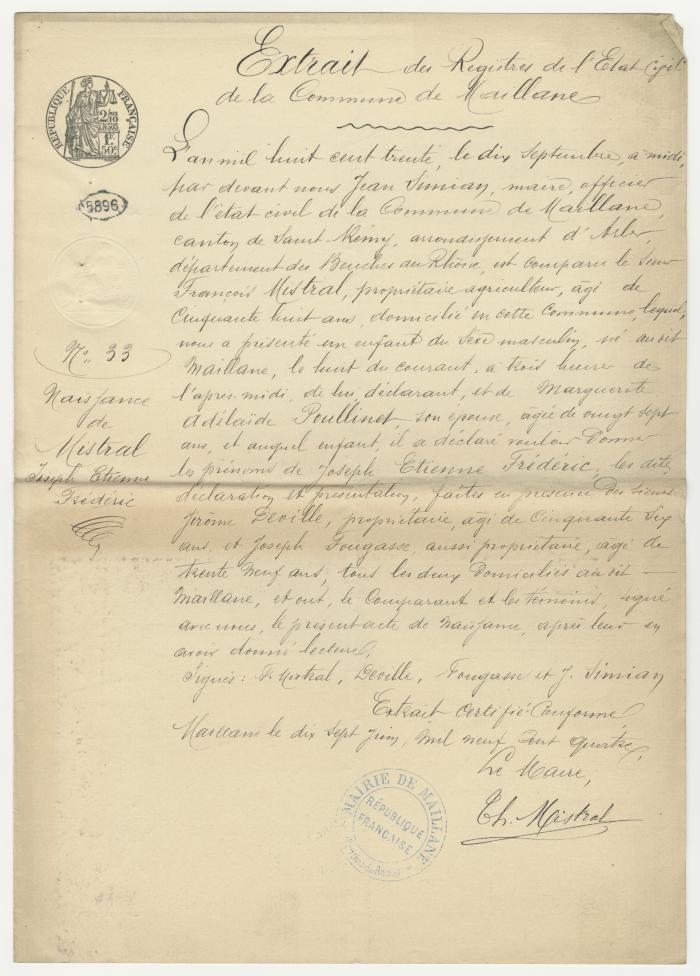 Extrait des Registres de l'Etat Civil
de la Commune de Maillane
RÉPUBLIQUE FRANÇAISE
2/10
EN SUS
1F.
50c.
5896
L'an mil huit cent trente, le dix Septembre, à midi,
par devant nous Jean Simian, maire, officier
de l'état civil de la Commune de Maillane,
canton de Saint-Rémy, arrondissement d'Arles,
département des Bouches du Rhône, est comparu le Sieur
François Mistral, propriétaire agriculteur, âgé de
Cinquante huit ans, domicilié en cette Commune, lequel
nous a présenté un enfant du Sexe masculin, né au dit
Maillane, le huit du courant, à trois heures de
l'après-midi, de lui, déclarant, et de Marguerite
Adélaïde Poullinet, son épouse, âgée de vingt sept
ans, et auquel enfant, il a déclaré vouloir donner
les prénoms de Joseph Etienne Frédéric, les dites
déclaration et présentation, faites en présence des Sieurs
Jérôme Deville, propriétaire, âgé de Cinquante Six
ans, et Joseph Fougasse, aussi propriétaire, âgé de
trente neuf ans, tous les deux Domiciliés au dit
Maillane, et ont, le Comparant et les témoins, signé
avec nous, le présent acte de naissance, après leur en
avoir donné lecture.
Signés: F. Mistral, Deville, Fougasse et J. Simian
Extrait Certifié Conforme
Maillane le dix Sept Juin, Mil neuf Cent quatre,
Le Maire,
Th. Mistral
No. 33
Naissance
de
Mistral
Joseph Etienne
Frédéric
MAIRIE DE MAILLANE
RÉPUBLIQUE
FRANÇAISE